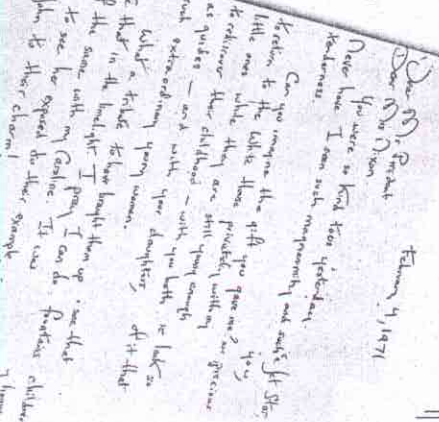 February 4, 1971
Dear Mr. President
Dear Mrs. Nixon
You were so kind to us yesterday.
Never have I seen such magnanimity and such
tenderness.
Can you imagine the gift you gave me,
to return to the White House privately with my
little ones while they are still young enough
to rediscover their childhood – with you both
as guides – and with your daughters,
such extraordinary young women.
What a tribute to have brought them up
that in the limelight. I pray I can do
the same with my Caroline. It was
to see her exposed to their example
to their charm!